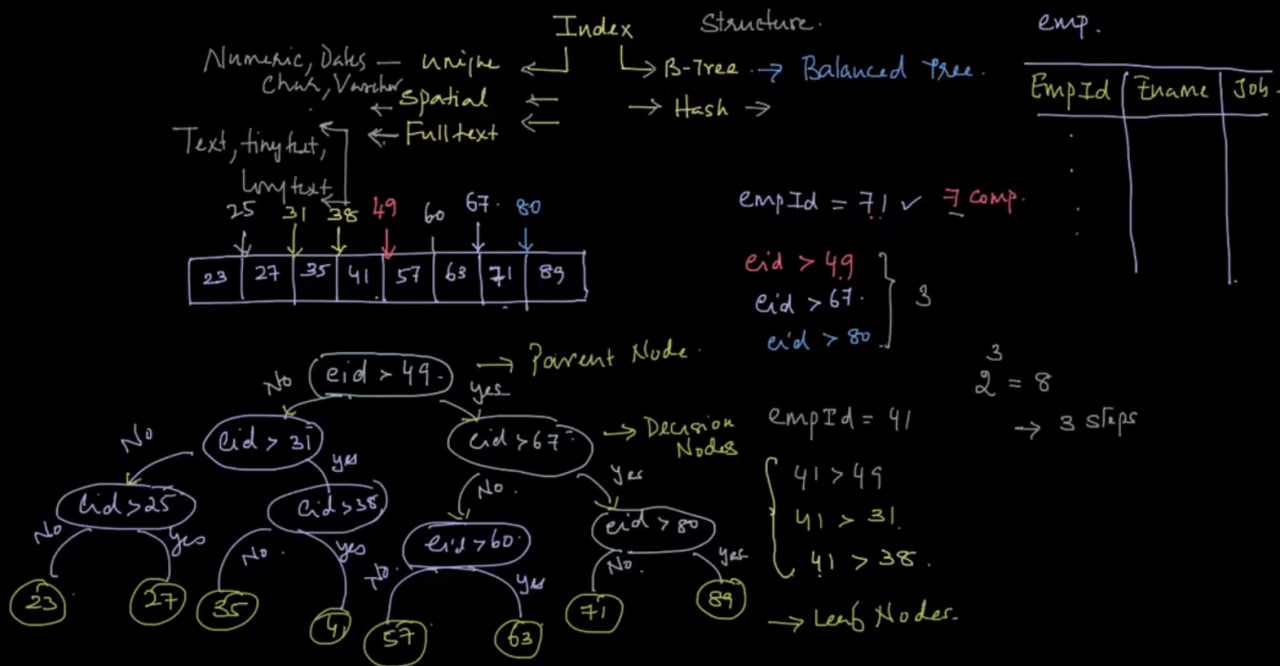 Index
Structure.
emp.
Numeric, Dates — unique
Char, Varchar
Spatial
Full text
B-Tree → Balanced Tree.
Hash →
EmpId Ename Job
Text, tiny text,
Long text
25 31 38 49 60 67 80
23 27 35 41 57 63 71 89
empId = 71 ✓ 7 comp.
eid > 49
eid > 67
eid > 80
3
2³ = 8
→ 3 steps
eid > 49 → Parent Node.
No yes
eid > 31 eid > 67 → Decision Nodes
No yes No. Yes
eid > 25 eid > 38 eid > 60 eid > 80
No Yes No. yes No. Yes No. yes
23 27 35 41 57 63 71 89
empId = 41
41 > 49
41 > 31
41 > 38.
→ Leaf Nodes.